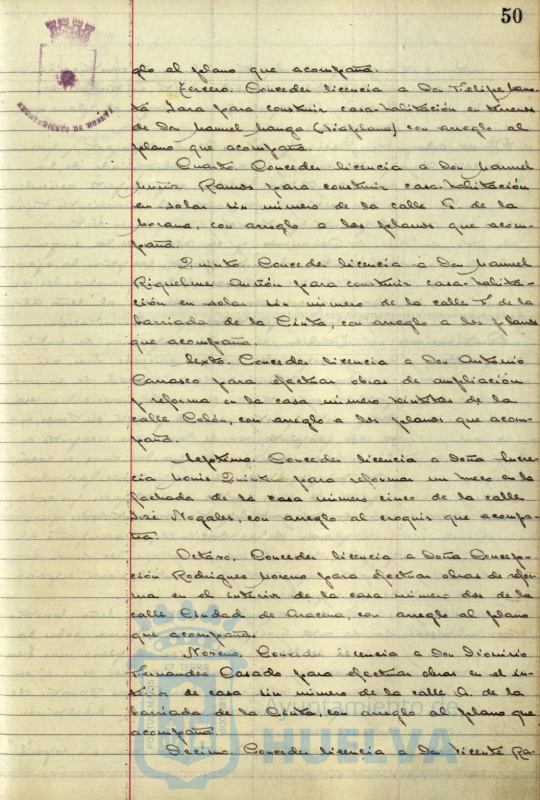 50
AYUNTAMIENTO DE HUELVA
glo al plano que acompaña.
Tercero. Conceder licencia a Don Felipe
Jara para construir casa-habitación en terrenos
de Don Manuel Manga (Isaplano) con arreglo al
plano que acompaña.
Cuarto. Conceder licencia a Don Manuel
Muñiz Ramos para construir casa-habitación
en solar sin número de la calle G. de la
Morana, con arreglo a los planos que acom-
paña.
Quinto. Conceder licencia a Don Manuel
Riquelme para construir casa-habita-
ción en solar sin número de la calle F. de la
barriada de la Cinta, con arreglo a los planos
que acompaña.
Sexto. Conceder licencia a Don Antonio
Carrasco para efectuar obras de ampliación
y reforma en la casa número veintitres de la
calle Colón, con arreglo a los planos que acom-
paña.
Septimo. Conceder licencia a Doña Lucre-
cia Quintero para reformar un hueco en la
fachada de la casa número cinco de la calle
José Nogales, con arreglo al croquis que acompa-
ña.
Octavo. Conceder licencia a Doña Concep-
ción Rodriguez Moreno para efectuar obras de refor-
ma en el interior de la casa número dos de la
calle Ciudad de Aracena, con arreglo al plano
que acompaña.
Noveno. Conceder licencia a Don Dionisio
Fernandez Casado para efectuar obras en el in-
terior de casa sin número de la calle A. de la
barriada de la Cinta, con arreglo al plano que
acompaña.
Decimo. Conceder licencia a Don Vicente Ra-
Ayuntamiento de
HUELVA